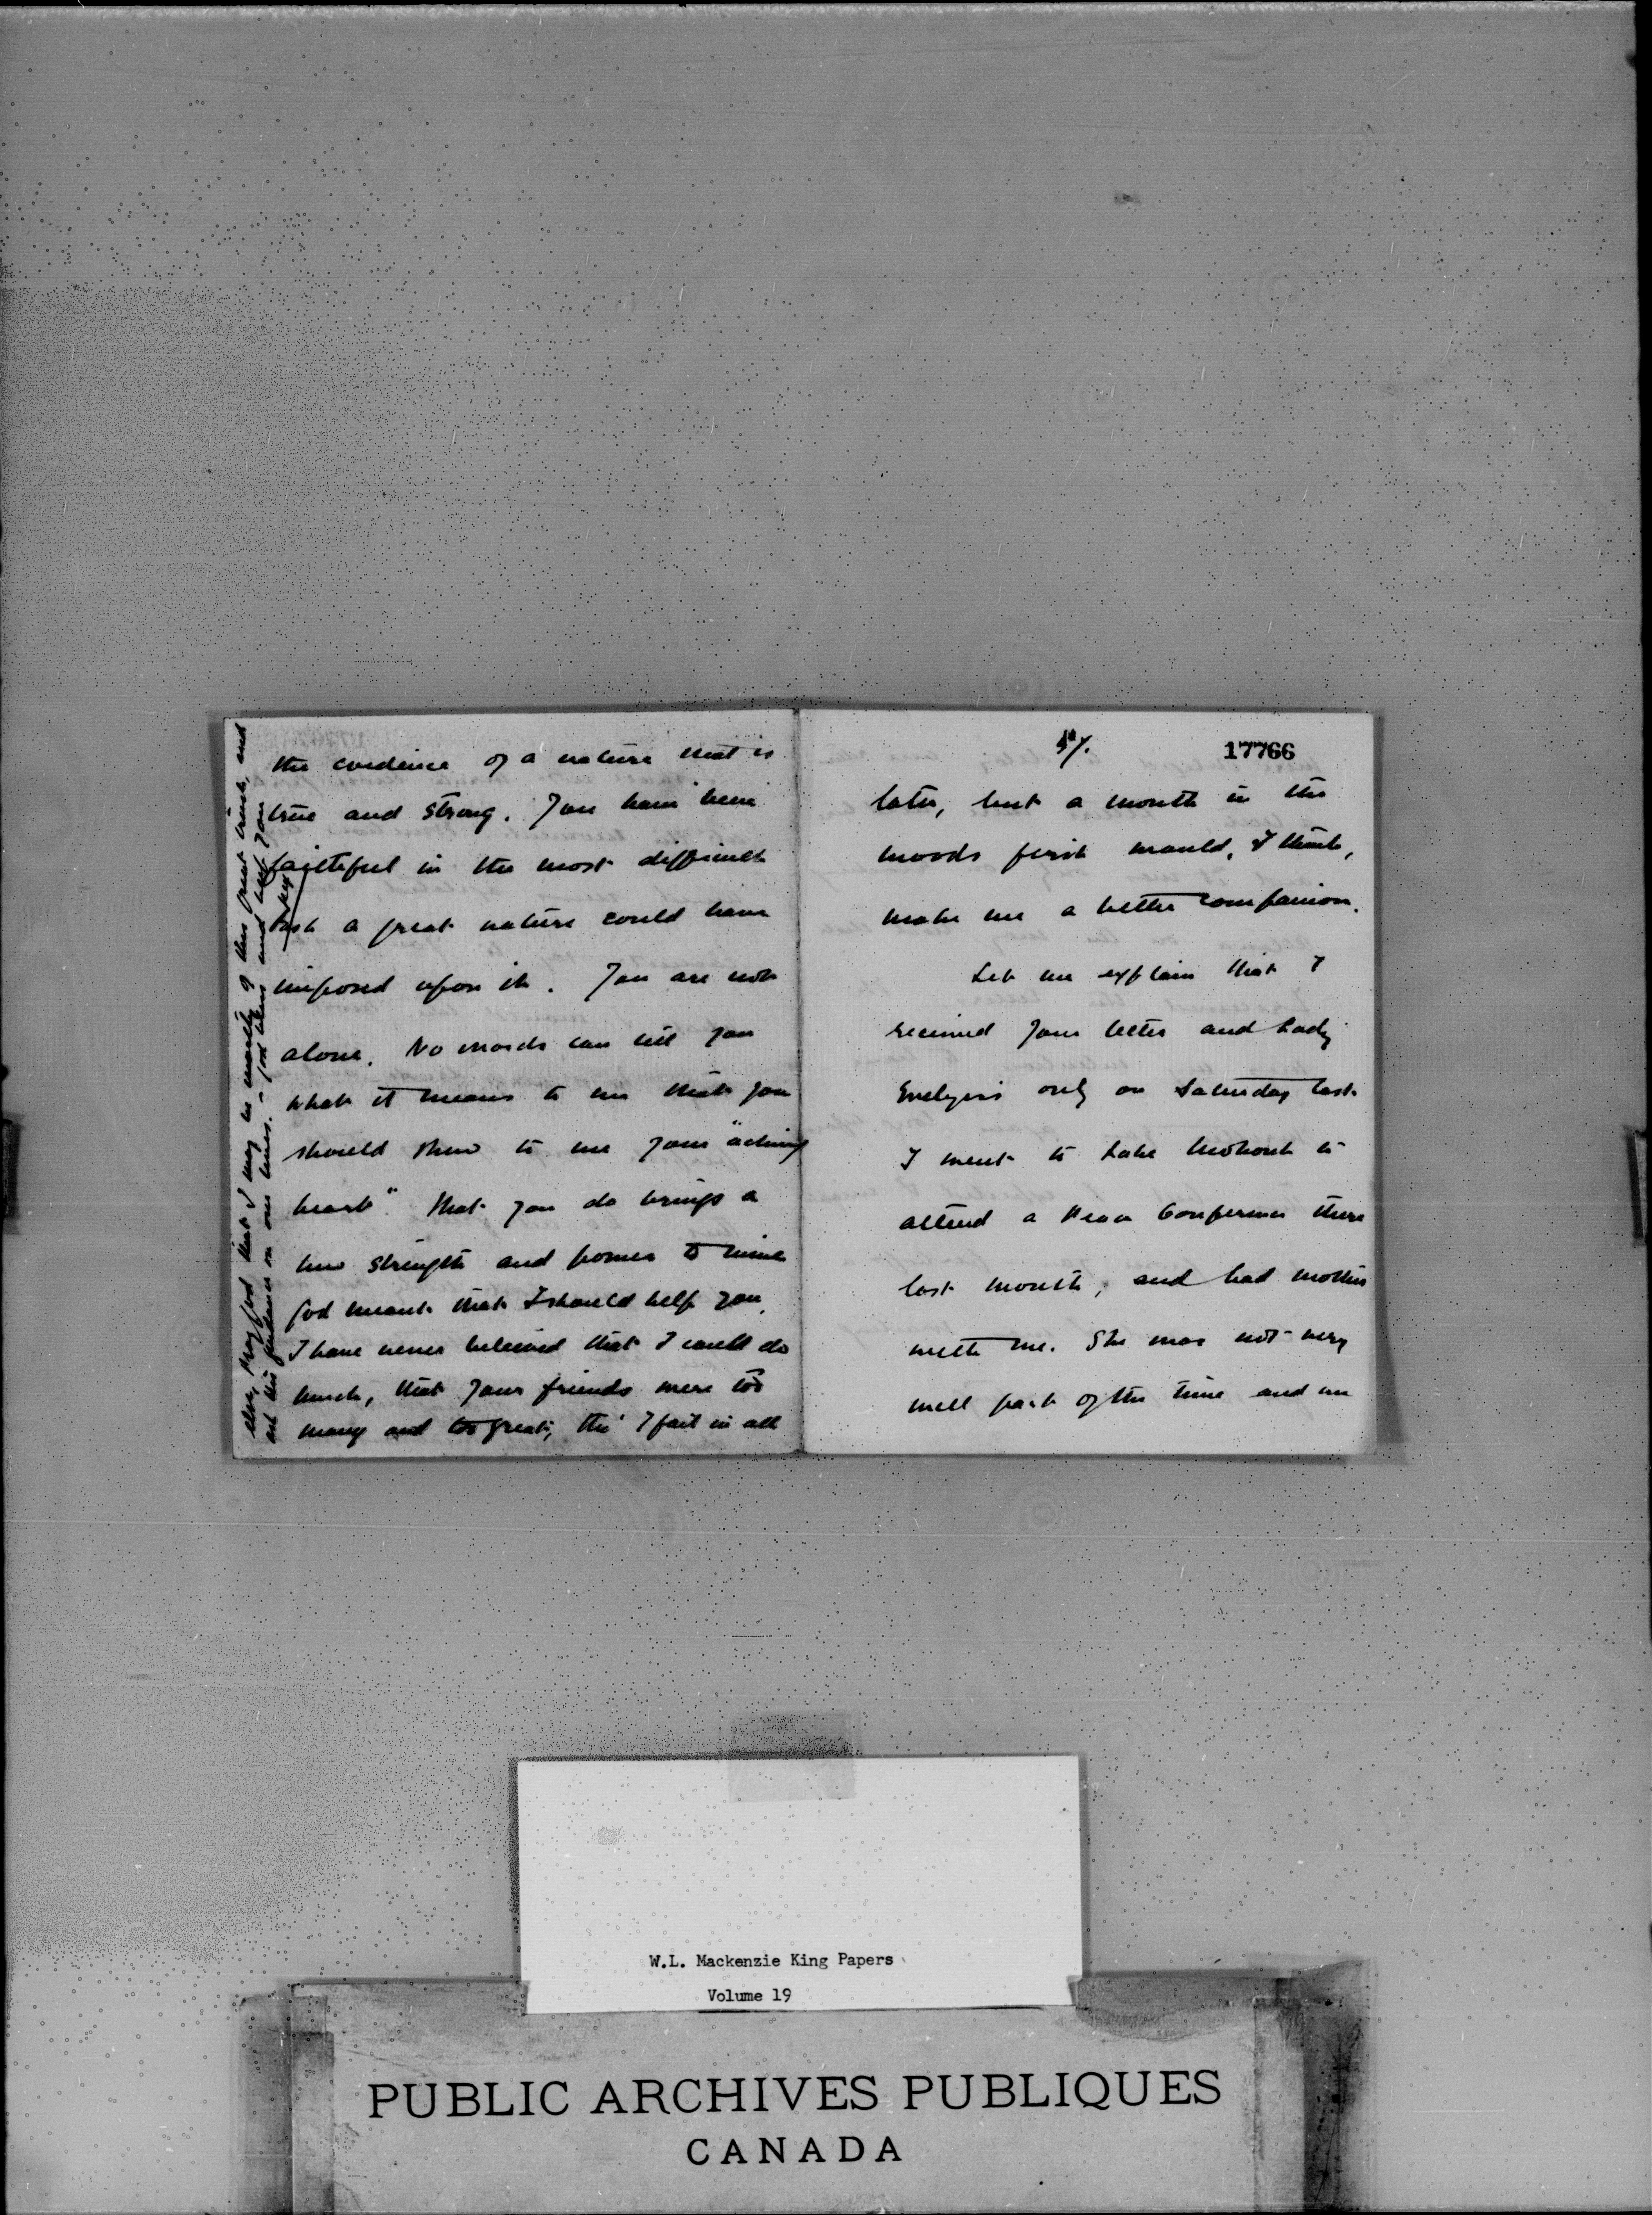 the evidence of a nature that is
true and strong. You have been
faithful in the most difficult
task a great nature could have
imposed upon it. You are not
alone. No words can tell you
what it means to me that you
should show to me your "aching
heart". That you do brings a
new strength and power to mine
God meant that I should help you.
I have never believed that I could do
much, that your friends were too
many and too great, tho' I fail in all
else, pray God that I may be worthy of this great trust, and
ask His guidance on our lives. – God bless and keep you
Rex
17766
later, but a month in the
woods first would, I think,
make me a better companion.
Let me explain that I
received your letter and Lady
Evelyn's only on Saturday last.
I went to Lake Mohonk to
attend a Peace Conference there
last month, and had mother
with me. She was not very
well part of the time and we
W.L. Mackenzie King Papers
Volume 19
PUBLIC ARCHIVES PUBLIQUES
CANADA